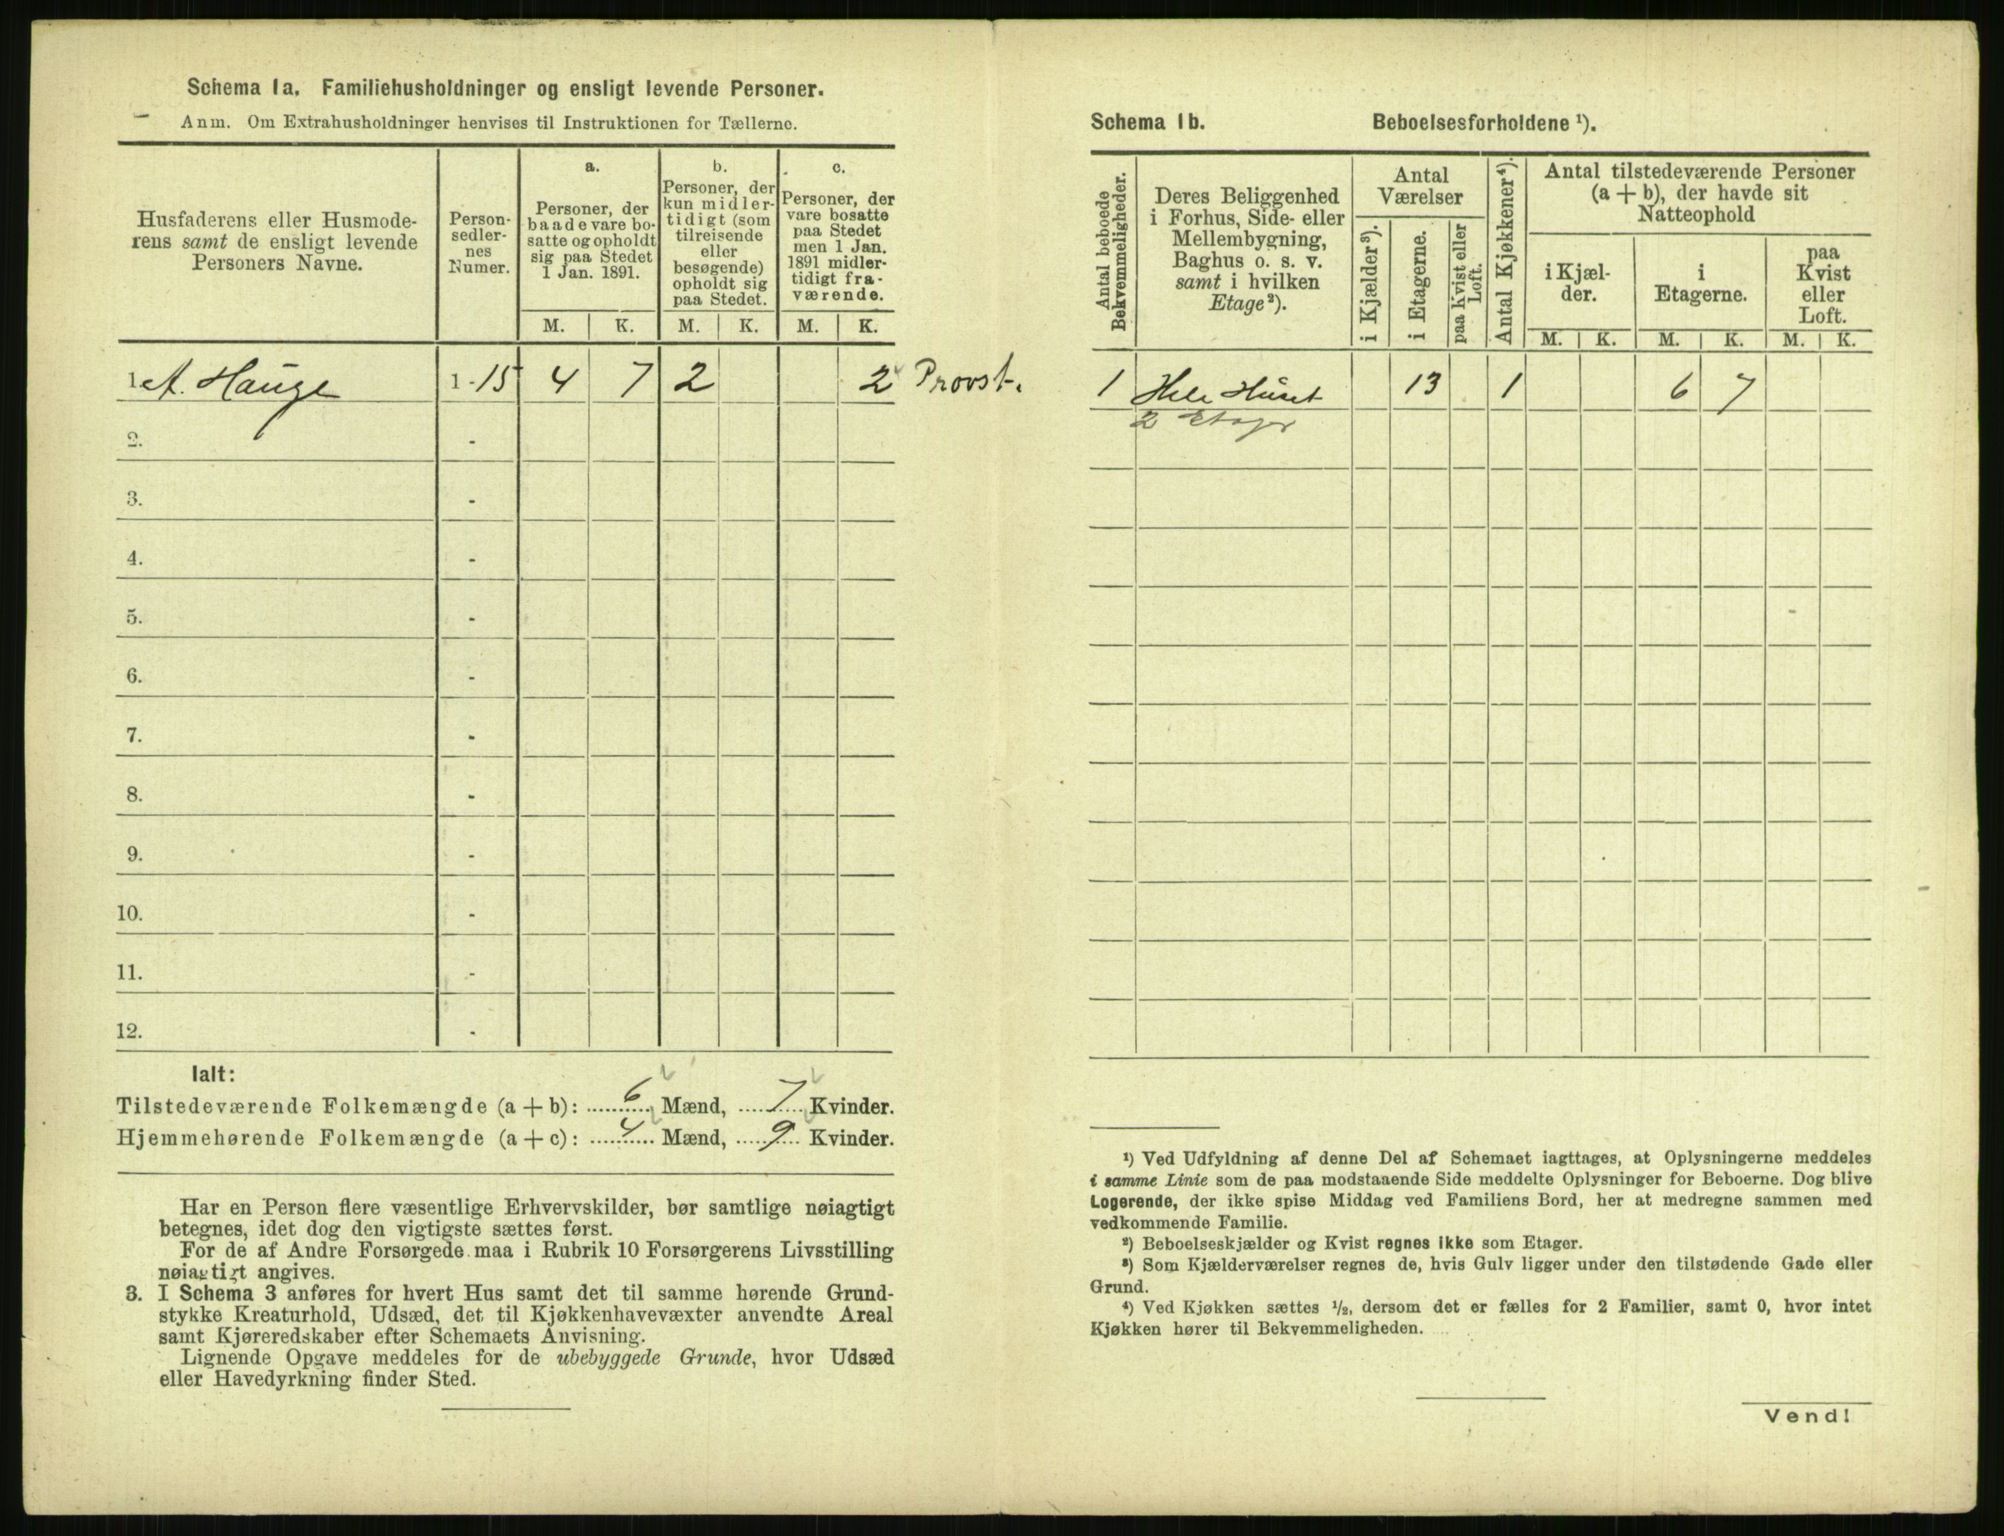 Schema 1a. Familiehusholdninger og ensligt levende Personer.
Anm. Om Extrahusholdninger henvises til Instruktionen for Tællerne.
Husfaderens eller Husmode-
rens samt de ensligt levende
Personers Navne.
Person-
sedler-
nes
Numer.
a.
Personer, der
baade vare bo-
satte og opholdt
sig paa Stedet
1 Jan. 1891.
b.
Personer, der
kun midler-
tidigt (som
tilreisende
eller
besøgende)
opholdt sig
paa Stedet.
c.
Personer, der
vare bosatte
paa Stedet
men 1 Jan.
1891 midler-
tidigt fra-
værende.
M. K. M. K. M. K.
1. A. Hauge 1-15 4 7 2 2 Provst.
2. -
3. -
4. -
5. -
6. -
7. -
8. -
9. -
10. -
11. -
12. -
Ialt:
Tilstedeværende Folkemængde (a + b): 6 Mænd, 7 Kvinder.
Hjemmehørende Folkemængde (a + c): 4 Mænd, 9 Kvinder.
Har en Person flere væsentlige Erhvervskilder, bør samtlige nøiagtigt
betegnes, idet dog den vigtigste sættes først.
For de af Andre Forsørgede maa i Rubrik 10 Forsørgerens Livsstilling
nøiagtigt angives.
3. I Schema 3 anføres for hvert Hus samt det til samme hørende Grund-
stykke Kreaturhold, Udsæd, det til Kjøkkenhavevæxter anvendte Areal
samt Kjøreredskaber efter Schemaets Anvisning.
Lignende Opgave meddeles for de ubebyggede Grunde, hvor Udsæd
eller Havedyrkning finder Sted.
Schema 1b. Beboelsesforholdene ¹).
Antal beboede
Bekvemmeligheder.
Deres Beliggenhed
i Forhus, Side- eller
Mellembygning,
Baghus o. s. v.
samt i hvilken
Etage²).
Antal
Værelser
i Kjælder³).
i Etagerne.
paa Kvist eller
Loft.
Antal Kjøkkener⁴).
Antal tilstedeværende Personer
(a + b), der havde sit
Natteophold
i Kjæl-
der.
i
Etagerne.
paa
Kvist
eller
Loft.
M. K. M. K. M. K.
1 Hele Huset 13 1 6 7
2 Etager
¹) Ved Udfyldning af denne Del af Schemaet iagttages, at Oplysningerne meddeles
i samme Linie som de paa modstaaende Side meddelte Oplysninger for Beboerne. Dog blive
Logerende, der ikke spise Middag ved Familiens Bord, her at medregne sammen med
vedkommende Familie.
²) Beboelseskjælder og Kvist regnes ikke som Etager.
³) Som Kjælderværelser regnes de, hvis Gulv ligger under den tilstødende Gade eller
Grund.
⁴) Ved Kjøkken sættes ½, dersom det er fælles for 2 Familier, samt 0, hvor intet
Kjøkken hører til Bekvemmeligheden.
Vend!